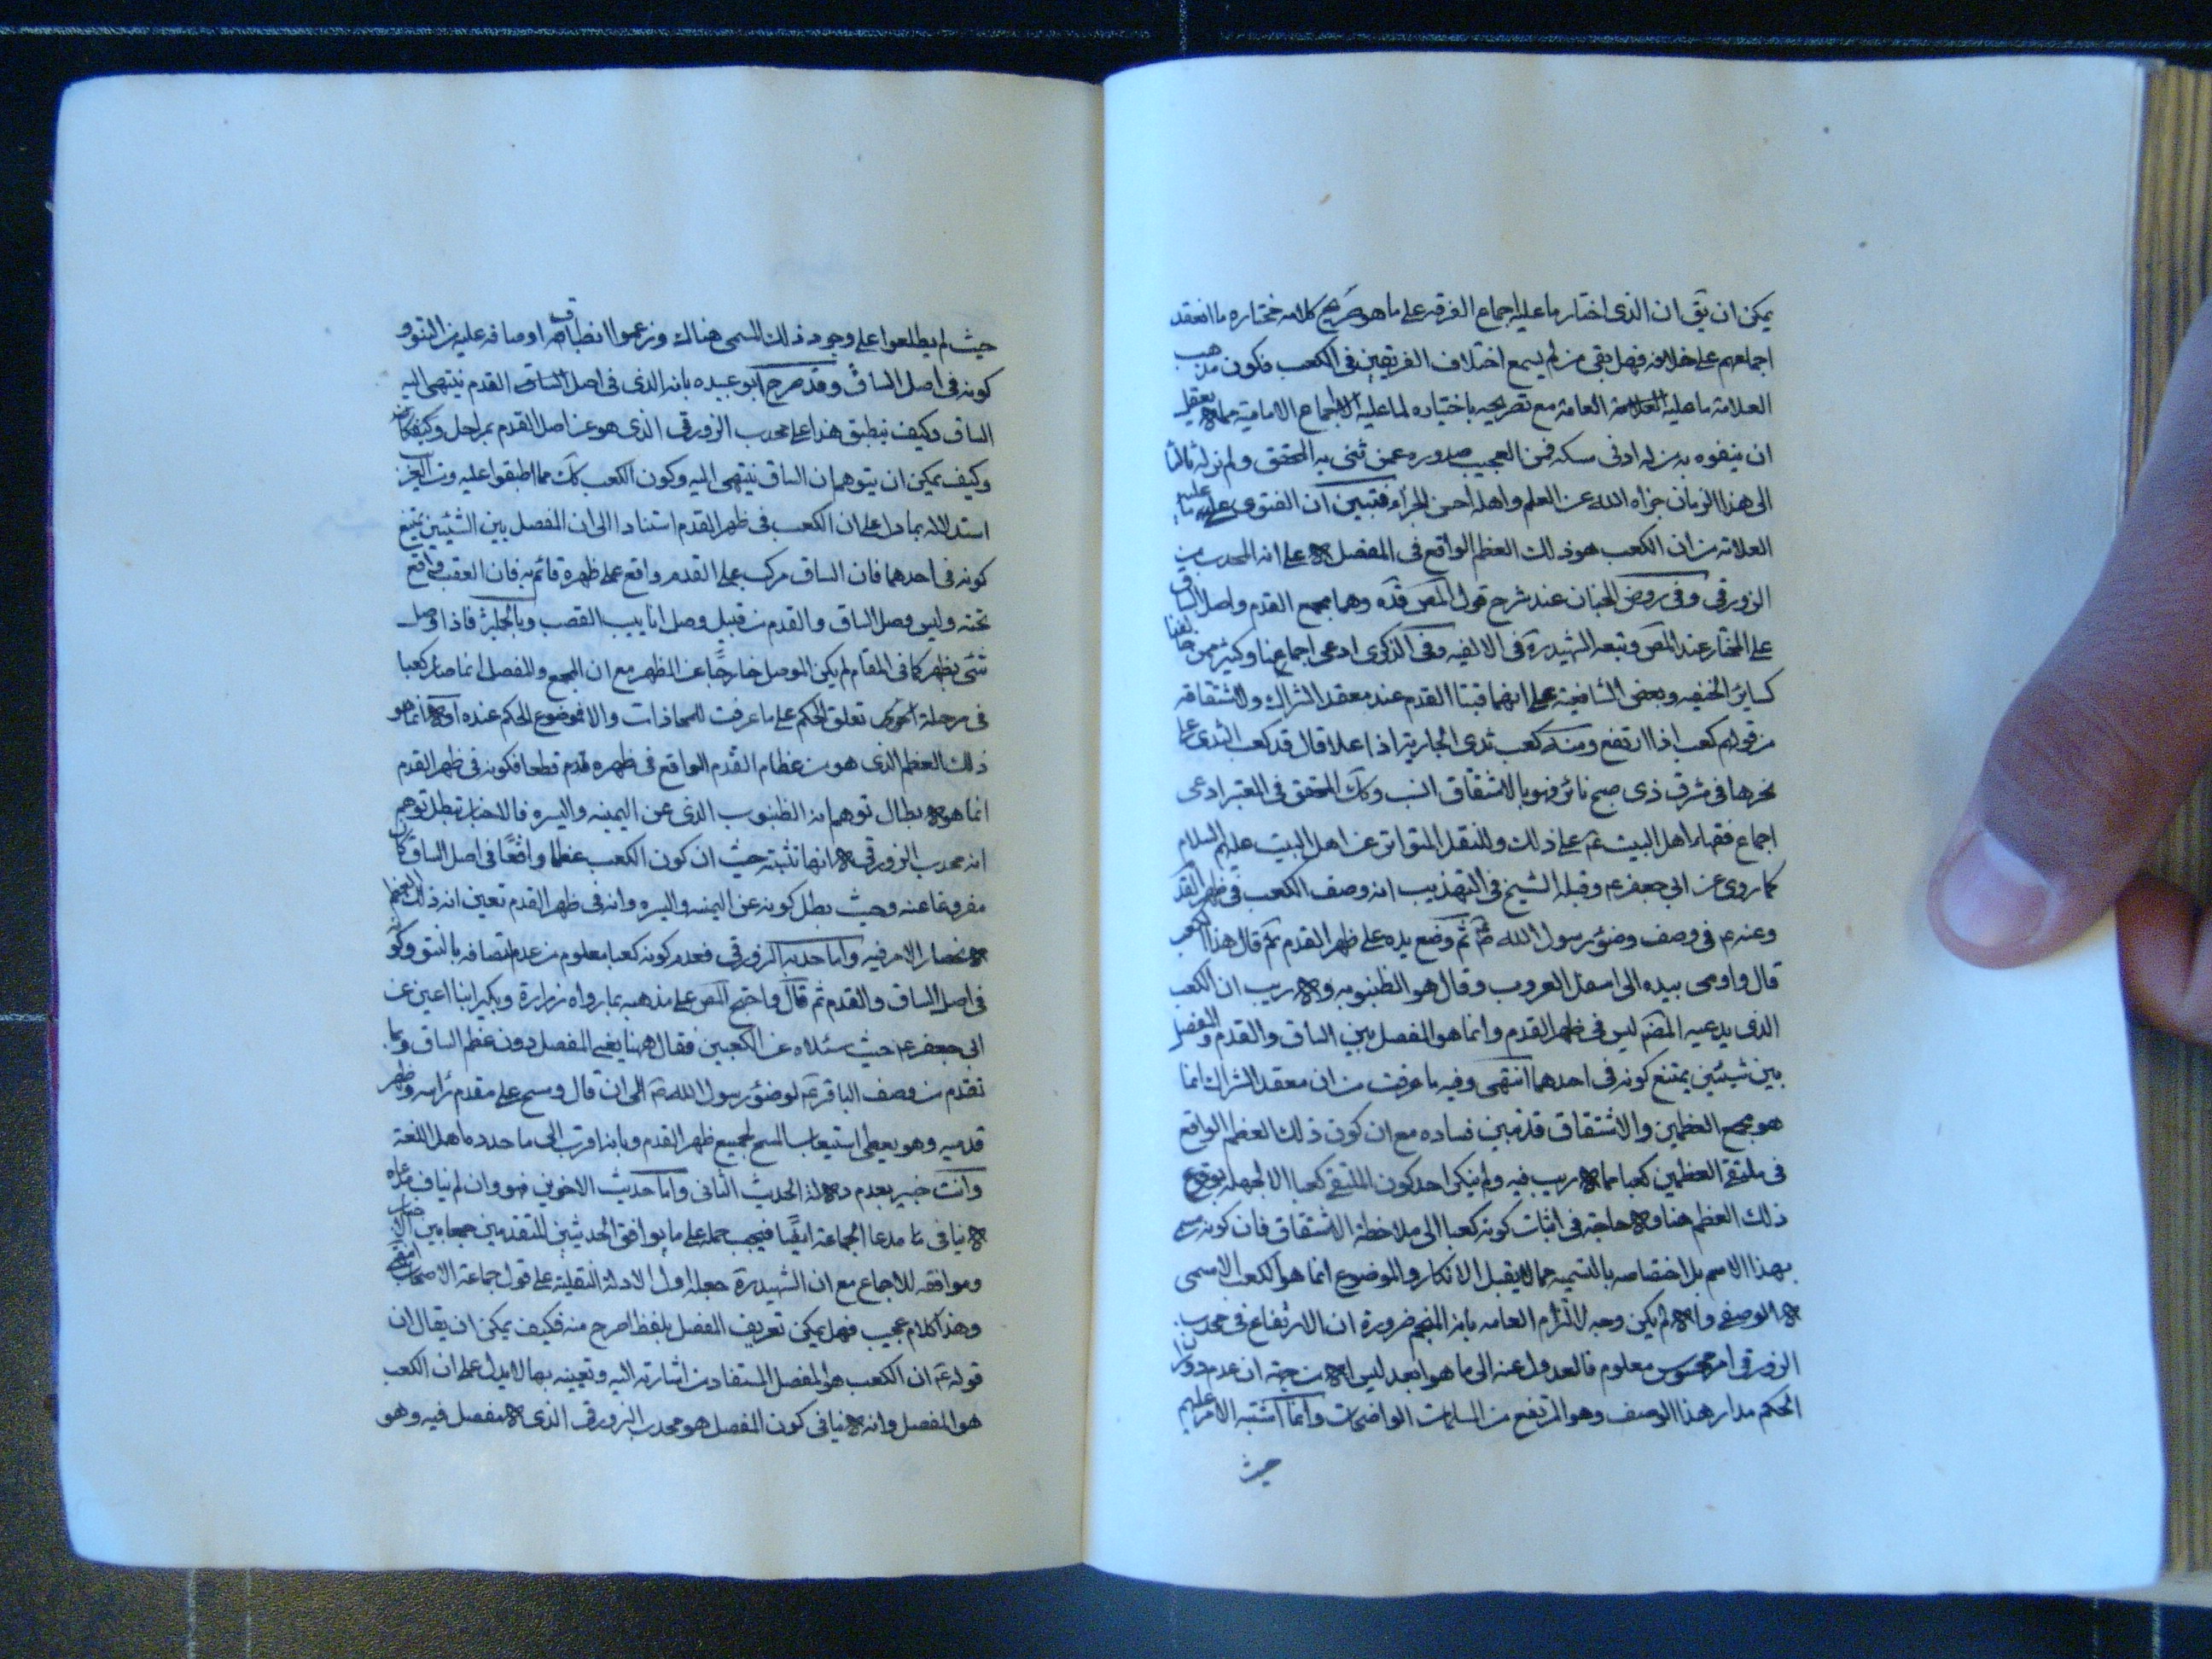 يمكن ان يق ان الذى اختار ما عليه اجماع الفرقه على ما هو صريح كلامه مختاره ما انعقد
اجماعهم على خلافه فهل بقى من لم يسمع اختلاف الفريقين فى الكعب فكون مذهب
العلامة ما عليه العامة مع تصريحه باختياره لما عليه الاجماع الامامية مما لا يعقل
ان يتفوه به من له ادنى مسكه فمن العجيب صدوره عمن ثنى به المحقق ولم نر له ثالثا
الى هذا الزمان جزاه الله عن العلم واهله احسن الجزاء فتبين ان الفتوى على ما عليه
العلامه من ان الكعب هو ذلك العظم الواقع فى المفصل لا على انه المحدب من
الزورقى وفى روض الجنان عند شرح قول المص قده وهما مجمع القدم واصل الساق
على المختار عند المص وتبعه الشهيد ره فى الالفيه وفى الذكرى ادعى اجماعنا وكثير ممن خالفنا
كساير الحنفيه وبعض الشافعية على انهما قبتا القدم عند معقد الشراك والاشتقاقه
من قولهم كعب اذا ارتفع ومنه كعب ثدى الجارية اذا علا قال قد كعب الثدى على
نحرها فى مشرق ذى صبح نائر فهو بالاشتقاق انسب وكك المحقق فى المعتبر ادعى
اجماع فقهاء اهل البيت عم على ذلك وللنقل المتواتر عن اهل البيت عليهم السلام
كما روى عن ابي جعفر عم وقبله الشيخ فى التهذيب انه وصف الكعب فى ظهر القدم
وعنه عم فى وصف وضوء رسول الله صم ثم وضع يده على ظهر القدم ثم قال هذا الكعب
قال واومى بيده الى اسفل العرقوب وقال هو الظنبوب ولا ريب ان الكعب
الذى يدعيه المص ليس فى ظهر القدم وانما هو المفصل بين الساق والقدم والمفصل
بين شيئين يمتنع كونه فى احدهما انتهى وفيه ما عرفت من ان معقد الشراك انما
هو مجمع العظمين والاشتقاق قد تبين فساده مع ان كون ذلك العظم الواقع
فى ملتقى العظمين كعبا مما لا ريب فيه ولم ينكر احد كون الملتقى كعبا الا لجهله بوقوع
ذلك العظم هنا ولا حاجة فى اثبات كونه كعبا الى ملاحظة الاشتقاق فان كونه مسمى
بهذا الاسم بل اختصاصه بالتسميه مما لا يقبل الانكار والموضوع انما هو الكعب الاسمى
لا الوصفى والا لم يكن وجه لالتزام العامه بانه المنجم ضرورة ان الارتفاع فى محدب
الزورقى امر محسوس معلوم فالعدول عنه الى ما هو ابعد ليس الا من جهة ان عدم دوران
الحكم مدار هذا الوصف وهو المرتفع من السلمات الواضحات وانما اشتبه الامر عليهم
حيث
حيث لم يطلعوا على وجود ذلك المسمى هناك وزعموا انطباق اوصافه عليه من النتو و
كونه فى اصل الساق وقد صرح ابو عبيده بانه الذى فى اصل القدم ينتهى اليه
الساق وكيف ينطبق هذا على محدب الزورقى الذى هو عن اصل القدم بمراحل وكيف كان
وكيف يمكن ان يتوهم ان الساق ينتهى اليه وكون الكعب كك مما اطبقوا عليه ومن الغريب
استدلاله بما دل على ان الكعب فى ظهر القدم استنادا الى ان المفصل بين الشيئين يمتنع
كونه فى احدهما فان الساق مركب على القدم واقع على ظهره قائم به فان العقب واقع
تحته وليس وصل الساق والقدم من قبيل وصل انابيب القصب وبالجملة فاذا وصل
شئ بظهر كما فى المقام لم يكن الموصل خارجا عن الظهر مع ان المجمع والمفصل انما صار كعبا
فى مرحلة تعلق الحكم على ما عرفت للمحاذات والا فموضوع الحكم عنده اولا انما هو
ذلك العظم الذى هو من عظام القدم الواقع فى ظهره قدم قطعا فكونه فى ظهر القدم
انما هو لابطال توهم انه الظنبوب الذى عن اليمينه واليسره فالاخبار تبطل توهم
انه محدب الزورقى لا انها تثبته حيث ان كون الكعب عظما واقعا فى اصل الساق كان
مفروغا عنه وحيث بطل كونه عن اليمنه واليسره وانه فى ظهر القدم تعين انه ذلك العظم
لانحصار الامر فيه واما حدبه الزورقى فعدم كونه كعبا معلوم من عدم اتصافه بالنتو وكونه
فى اصل الساق والقدم ثم قال واحتج المص على مذهبه بما رواه زرارة وبكير ابنا اعين عن
ابى جعفر عم حيث سئلاه عن الكعبين فقال هيهنا يعنى المفصل دون عظم الساق وبما
تقدم من وصف الباقر عم لوضوء رسول الله صم الى ان قال ومسح على مقدم رأسه وظهر
قدميه وهو يعطى استيعاب المسح لجميع ظهر القدم وبانه اقرب الى ما حدده اهل اللغة
وانت خبير بعدم دلالة الحديث الثانى واما حديث الاخوين فهو وان لم يناف مدعاه
لا ينافى مدعا الجماعة ايضا فيجب حمله على ما يوافق الحديثين المتقدمين جمعا بين الاخبار
وموافقه للاجماع مع ان الشهيد ره جعله اول الادلة النقلية على قول جماعة الاصحاب انتهى
وهذا كلام عجيب فهل يمكن تعريف المفصل بلفظ اصرح منه فكيف يمكن ان يقال ان
قوله عم ان الكعب هو المفصل المستفاد من اشارته اليه وتعيينه بها لا يدل على ان الكعب
هو المفصل وانه لا ينافى كون المفصل هو محدب الزورقى الذى لا مفصل فيه وهو